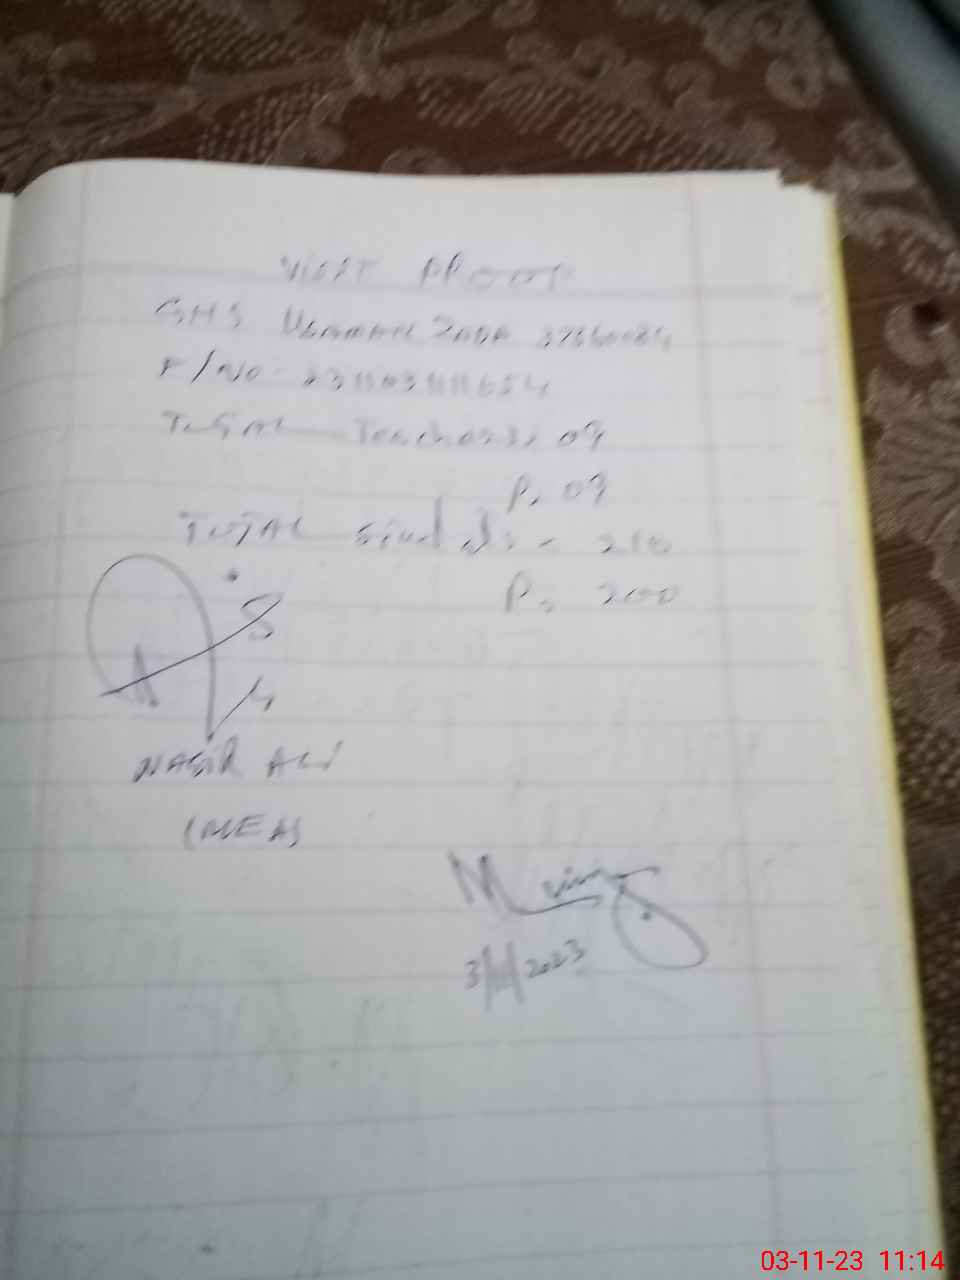 VISIT PROOF
GHS USAMAN ZADA
F/NO - 231103111654
TOTAL Teachers, 09
P, 09
TOTAL Stud - 210
P, 200
NASIR ALI
(MEA)
3/11/2023
03-11-23 11:14